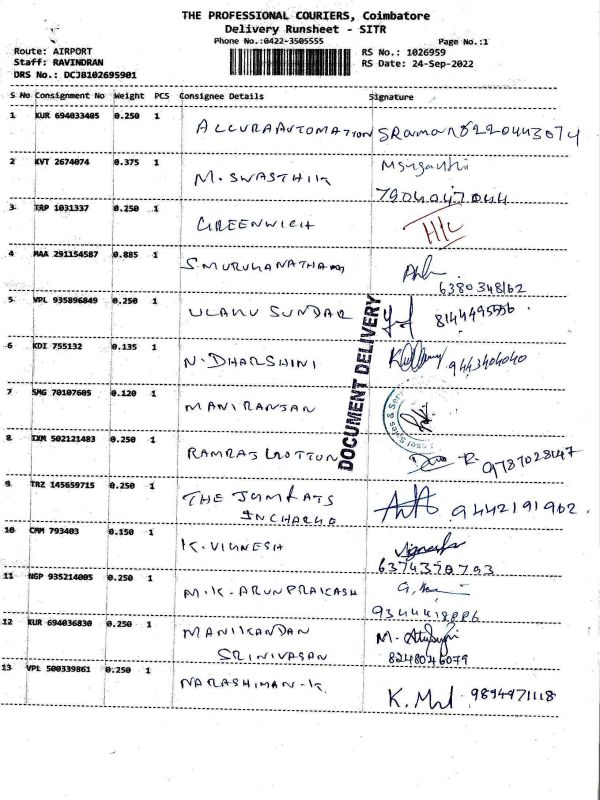 THE PROFESSIONAL COURIERS, Coimbatore
Delivery Runsheet - SITR
Phone No.:0422-3505555 Page No.:1
Route: AIRPORT RS No.: 1026959
Staff: RAVINDRAN RS Date: 24-Sep-2022
DRS No.: DCJB102695901
S No Consignment No Weight PCS Consignee Details Signature
1 KUR 694033405 0.250 1 ACCURAAUTOMATION
2 KVT 2674074 0.375 1 M. SWASTHIK
7904047044
3 TRP 1031337 0.250 1 GREENWICH
4 MAA 291154587 0.885 1 S. MURUGANATHAM
6380348162
5 VPL 935896849 0.250 1 ULAKU SUNDAR 8144495556
6 KDI 755132 0.135 1 N. DHARSHINI 9443404040
7 SMG 70107605 0.120 1 MANIRANJAN
DOCUMENT DELIVERY
8 IXM 502121483 0.250 1 RAMRAJ COTTON 9787028147
9 TRZ 145659715 0.250 1 THE JUMKATS 9442191902.
INCHARGE
10 CMM 793403 0.150 1 K. VIGNESH Vignesh
6374370793
11 NGP 935214005 0.250 1 M.K. ARUNPRAKASH
9344418886
12 KUR 694036830 0.250 1 MANIKANDAN
SRINIVASAN 8248046079
13 VPL 500339861 0.250 1 NARASHIMAN-K. 9894971118